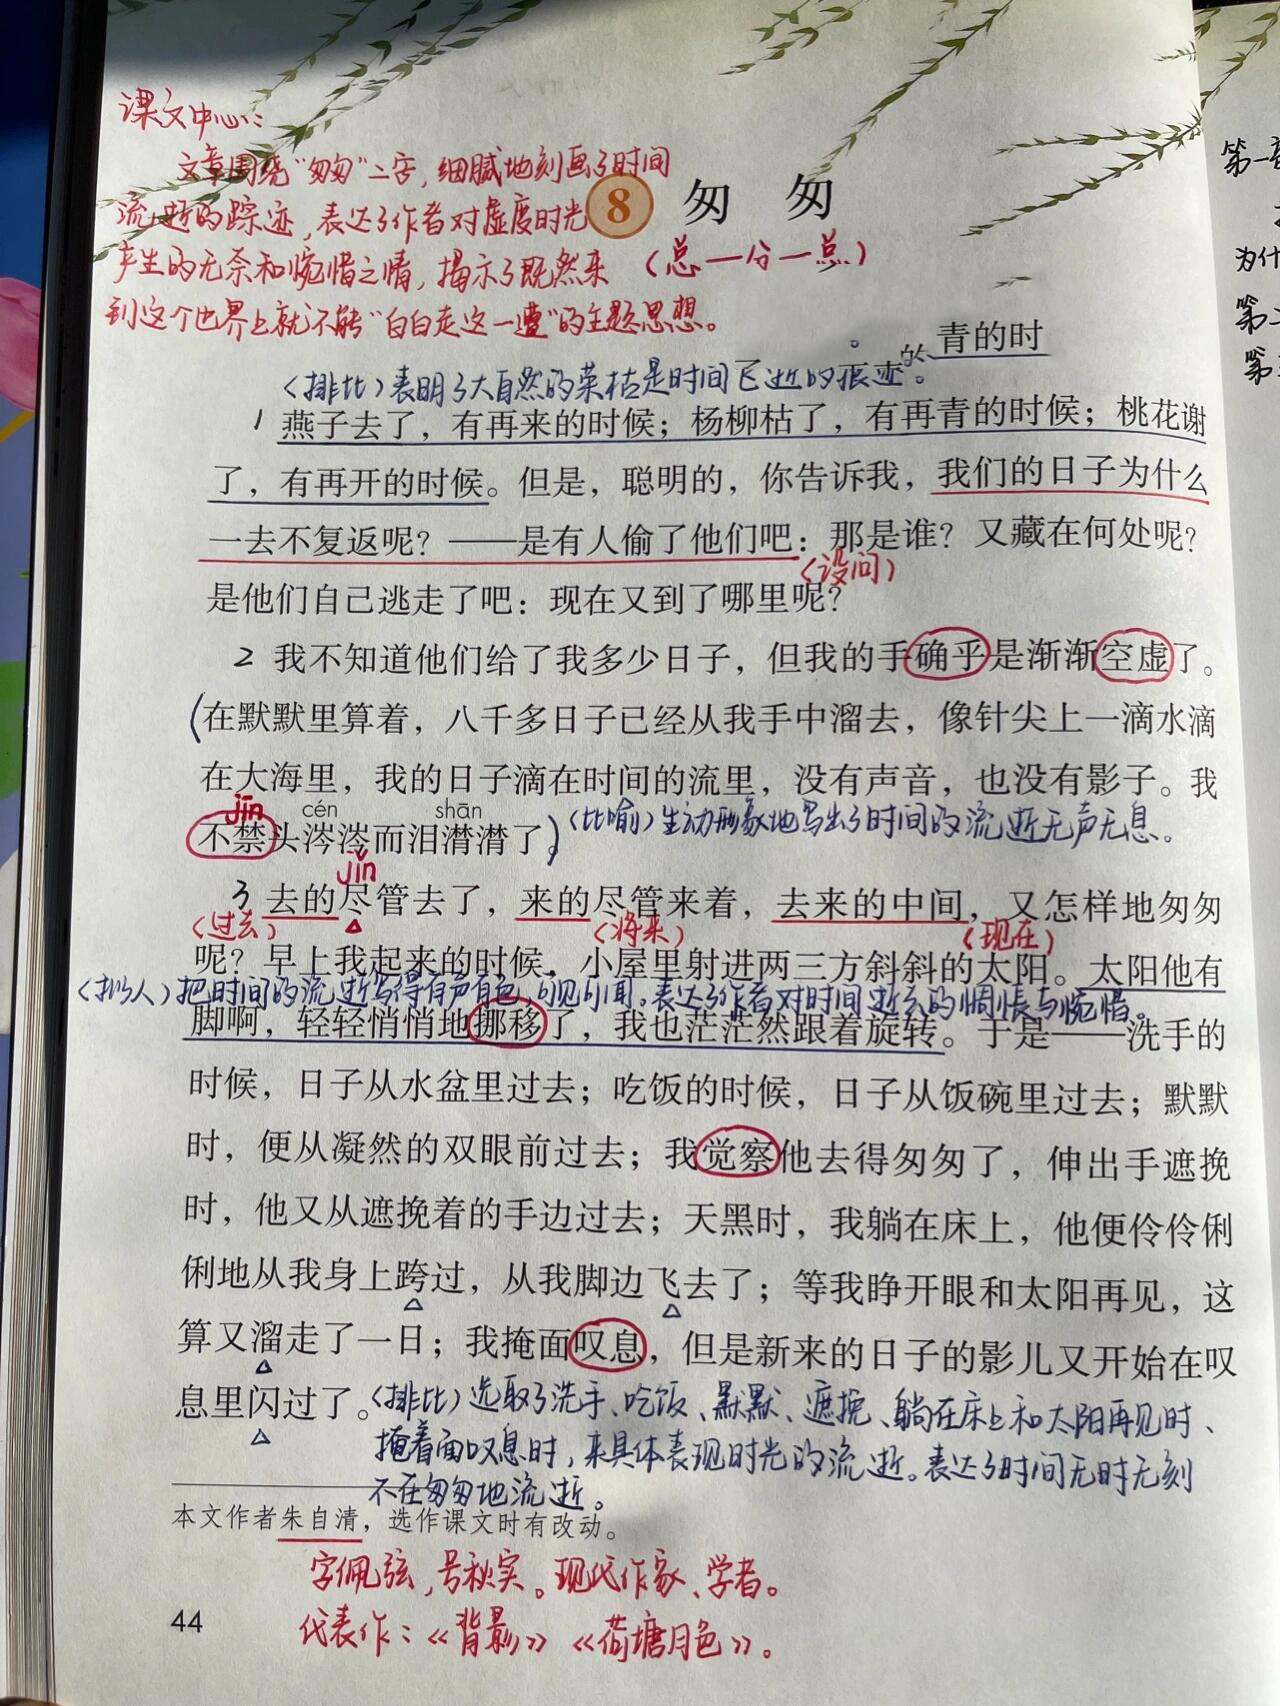 课文中心:
文章围绕“匆匆”二字,细腻地刻画了时间
流逝的踪迹,表达了作者对虚度时光
产生的无奈和惋惜之情,揭示了既然来
到这个世界上就不能“白白走这一遭”的主题思想。
8 匆匆
(总一分一总)
的青的时
(排比)表明了大自然的荣枯是时间飞逝的痕迹。
1 燕子去了，有再来的时候；杨柳枯了，有再青的时候；桃花谢
了，有再开的时候。但是，聪明的，你告诉我，我们的日子为什么
一去不复返呢？——是有人偷了他们吧：那是谁？又藏在何处呢？
(设问)
是他们自己逃走了吧：现在又到了哪里呢？
2 我不知道他们给了我多少日子，但我的手确乎是渐渐空虚了。
(在默默里算着，八千多日子已经从我手中溜去，像针尖上一滴水滴
在大海里，我的日子滴在时间的流里，没有声音，也没有影子。我
jīn cén shān
不禁头涔涔而泪潸潸了。)(比喻)生动形象地写出了时间的流逝无声无息。
jǐn
3 去的尽管去了，来的尽管来着，去来的中间，又怎样地匆匆
(过去) (将来) (现在)
呢？早上我起来的时候，小屋里射进两三方斜斜的太阳。太阳他有
(拟人)把时间的流逝写得有声有色,可见可闻。表达了作者对时间逝去的惆怅与惋惜。
脚啊，轻轻悄悄地挪移了，我也茫茫然跟着旋转。于是——洗手的
时候，日子从水盆里过去；吃饭的时候，日子从饭碗里过去；默默
时，便从凝然的双眼前过去；我觉察他去得匆匆了，伸出手遮挽
时，他又从遮挽着的手边过去；天黑时，我躺在床上，他便伶伶俐
俐地从我身上跨过，从我脚边飞去了；等我睁开眼和太阳再见，这
算又溜走了一日；我掩面叹息，但是新来的日子的影儿又开始在叹
息里闪过了。(排比)选取了洗手、吃饭、默默、遮挽、躺在床上和太阳再见时、
掩着面叹息时,来具体表现时光的流逝。表达了时间无时无刻
不在匆匆地流逝。
本文作者朱自清，选作课文时有改动。
字佩弦,号秋实。现代作家、学者。
代表作:《背影》《荷塘月色》。
44
第一
为什
第二
第